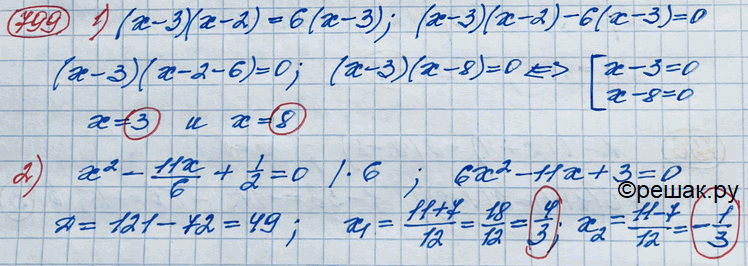 799 1) (x-3)(x-2) = 6(x-3); (x-3)(x-2)-6(x-3)=0
(x-3)(x-2-6)=0; (x-3)(x-8)=0 <=> [ x-3=0
x-8=0
x=3 и x=8
2) x² - 11x/6 + 1/2 = 0 | · 6 ; 6x² - 11x + 3 = 0
©решак.ру
Д = 121 - 72 = 49; x₁ = 11+7/12 = 18/12 = 4/3; x₂ = 11-7/12 = -1/3